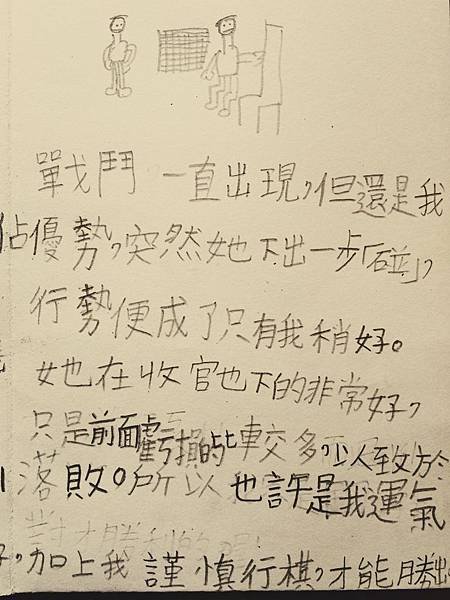 戰鬥一直出現,但還是我
佔優勢,突然她下出一步「碰」,
行勢便成了只有我稍好。
她在收官也下的非常好,
只是前面虧損的比較多,以致於
落敗。所以也許是我運氣
好,加上我謹慎行棋,才能勝出